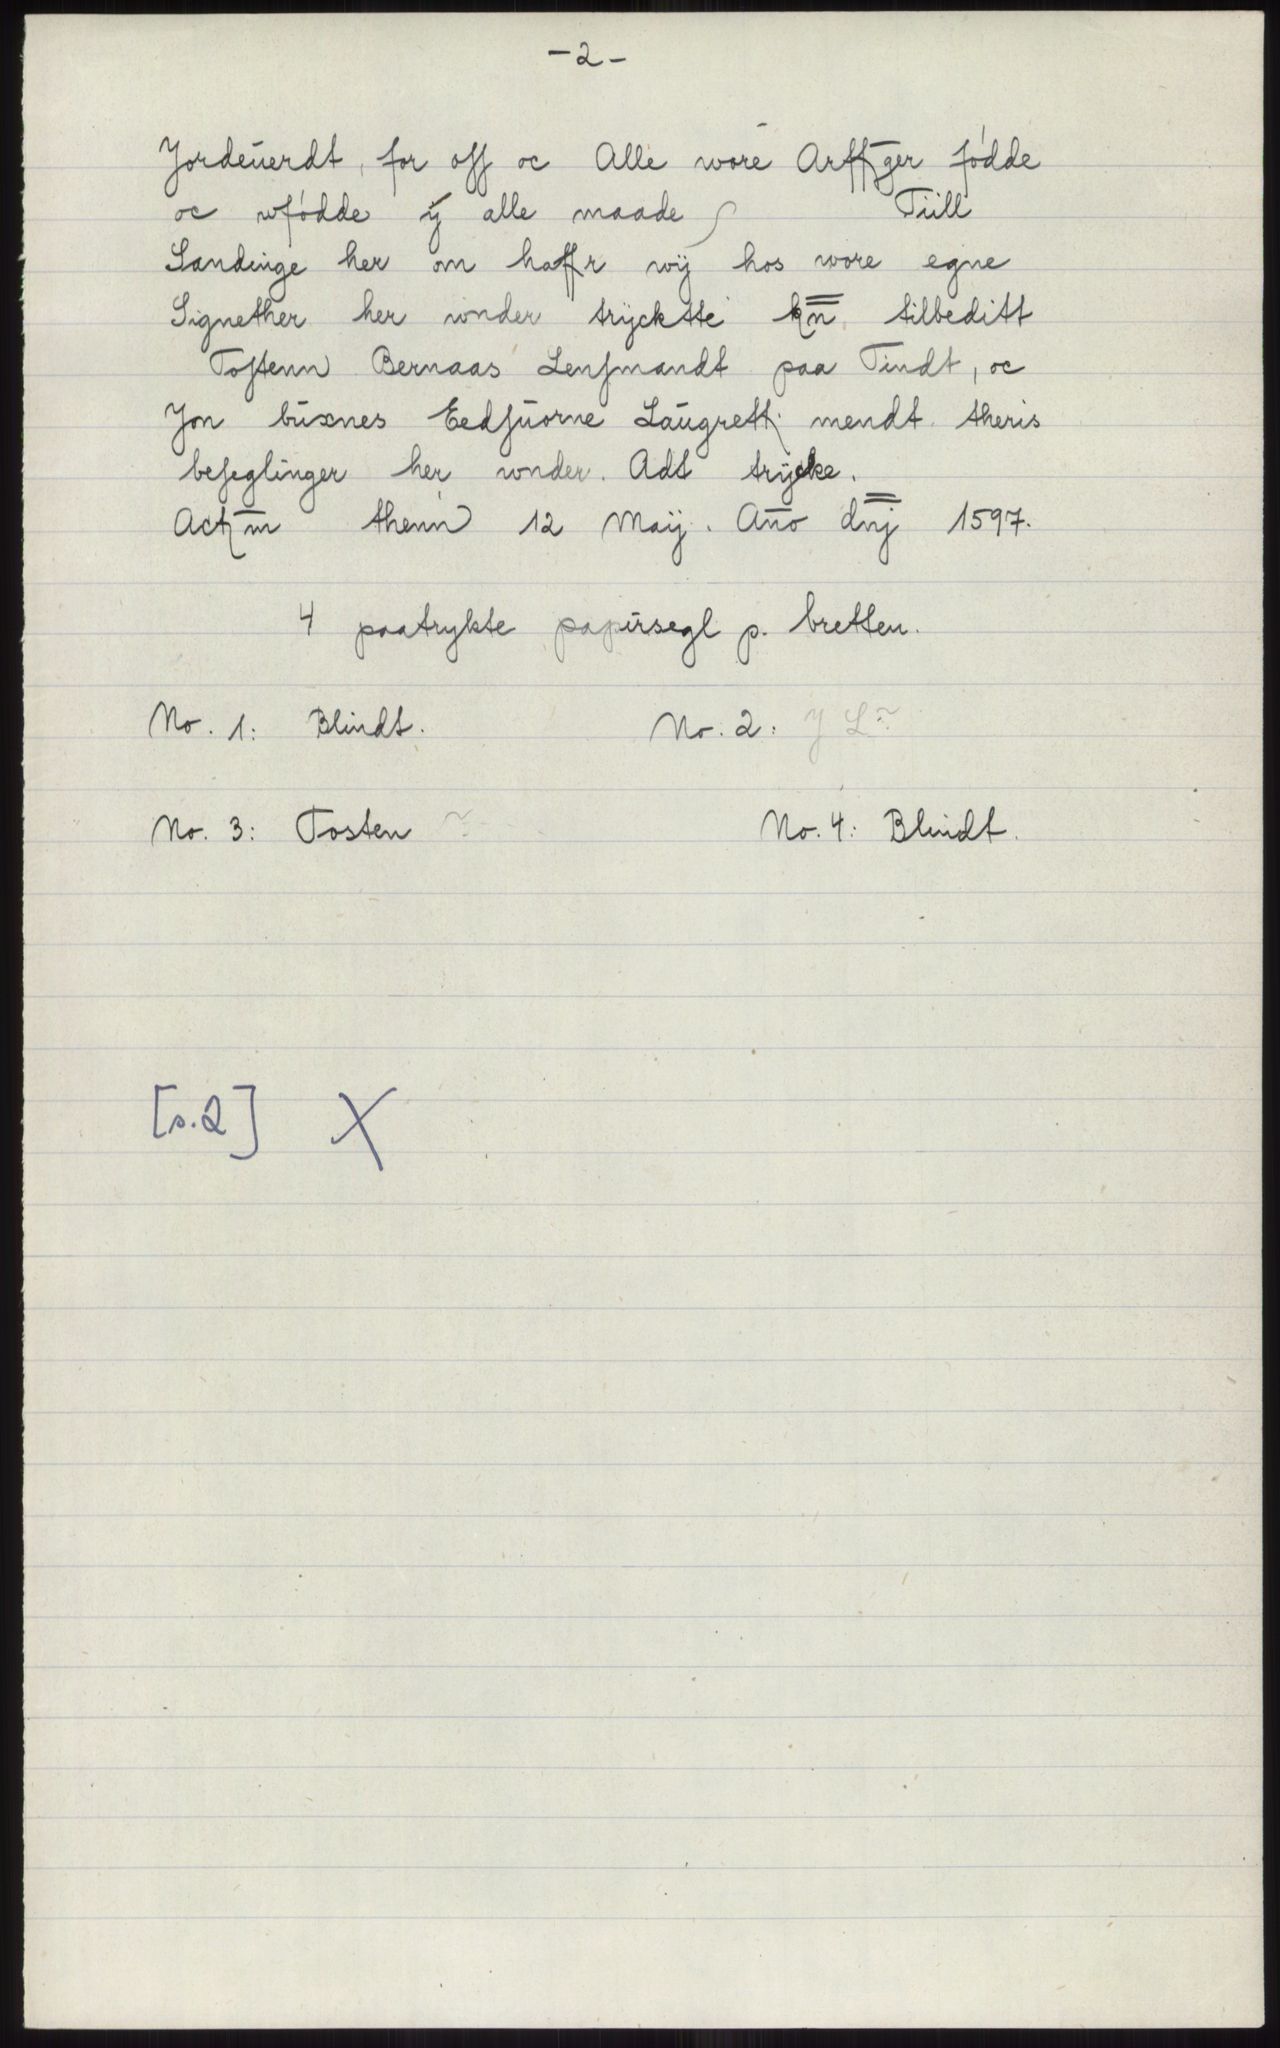 -2-
Jordeuerdt, for oss oc Alle wore Arffger fødde
oc wfødde ÿ alle maade Till
Sandinge her om haffr wÿ hos wore egne
Signether her wnder trÿckte tilbeditt
Tostenn Bernaas Lensmandt paa Tindt, oc
Jon buxnes Eedsuorne Laugrett mendt theris
beseglinger her wnder Adt trÿcke.
thenn 12 Maÿ. Año dnj 1597.
4 paatrykte papirsegl p. bretten.
No. 1: Blindt. No. 2: J L
No. 3: Tosten No. 4: Blindt.
[s.2] X